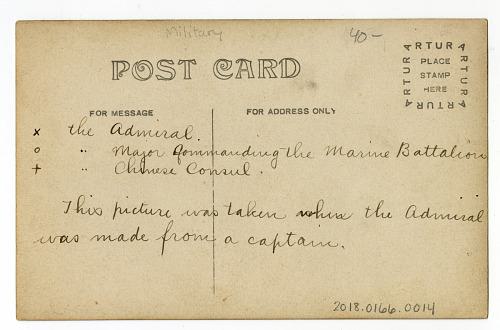 Military
40-
POST CARD
ARTURA
ARTURA
PLACE
STAMP
HERE
ARTURA
ARTURA
FOR MESSAGE
FOR ADDRESS ONLY
x the Admiral.
o " Major Commanding the Marine Battalion
+ " Chinese Consul.
This picture was taken when the Admiral
was made from a captain.
2018.0166.0014